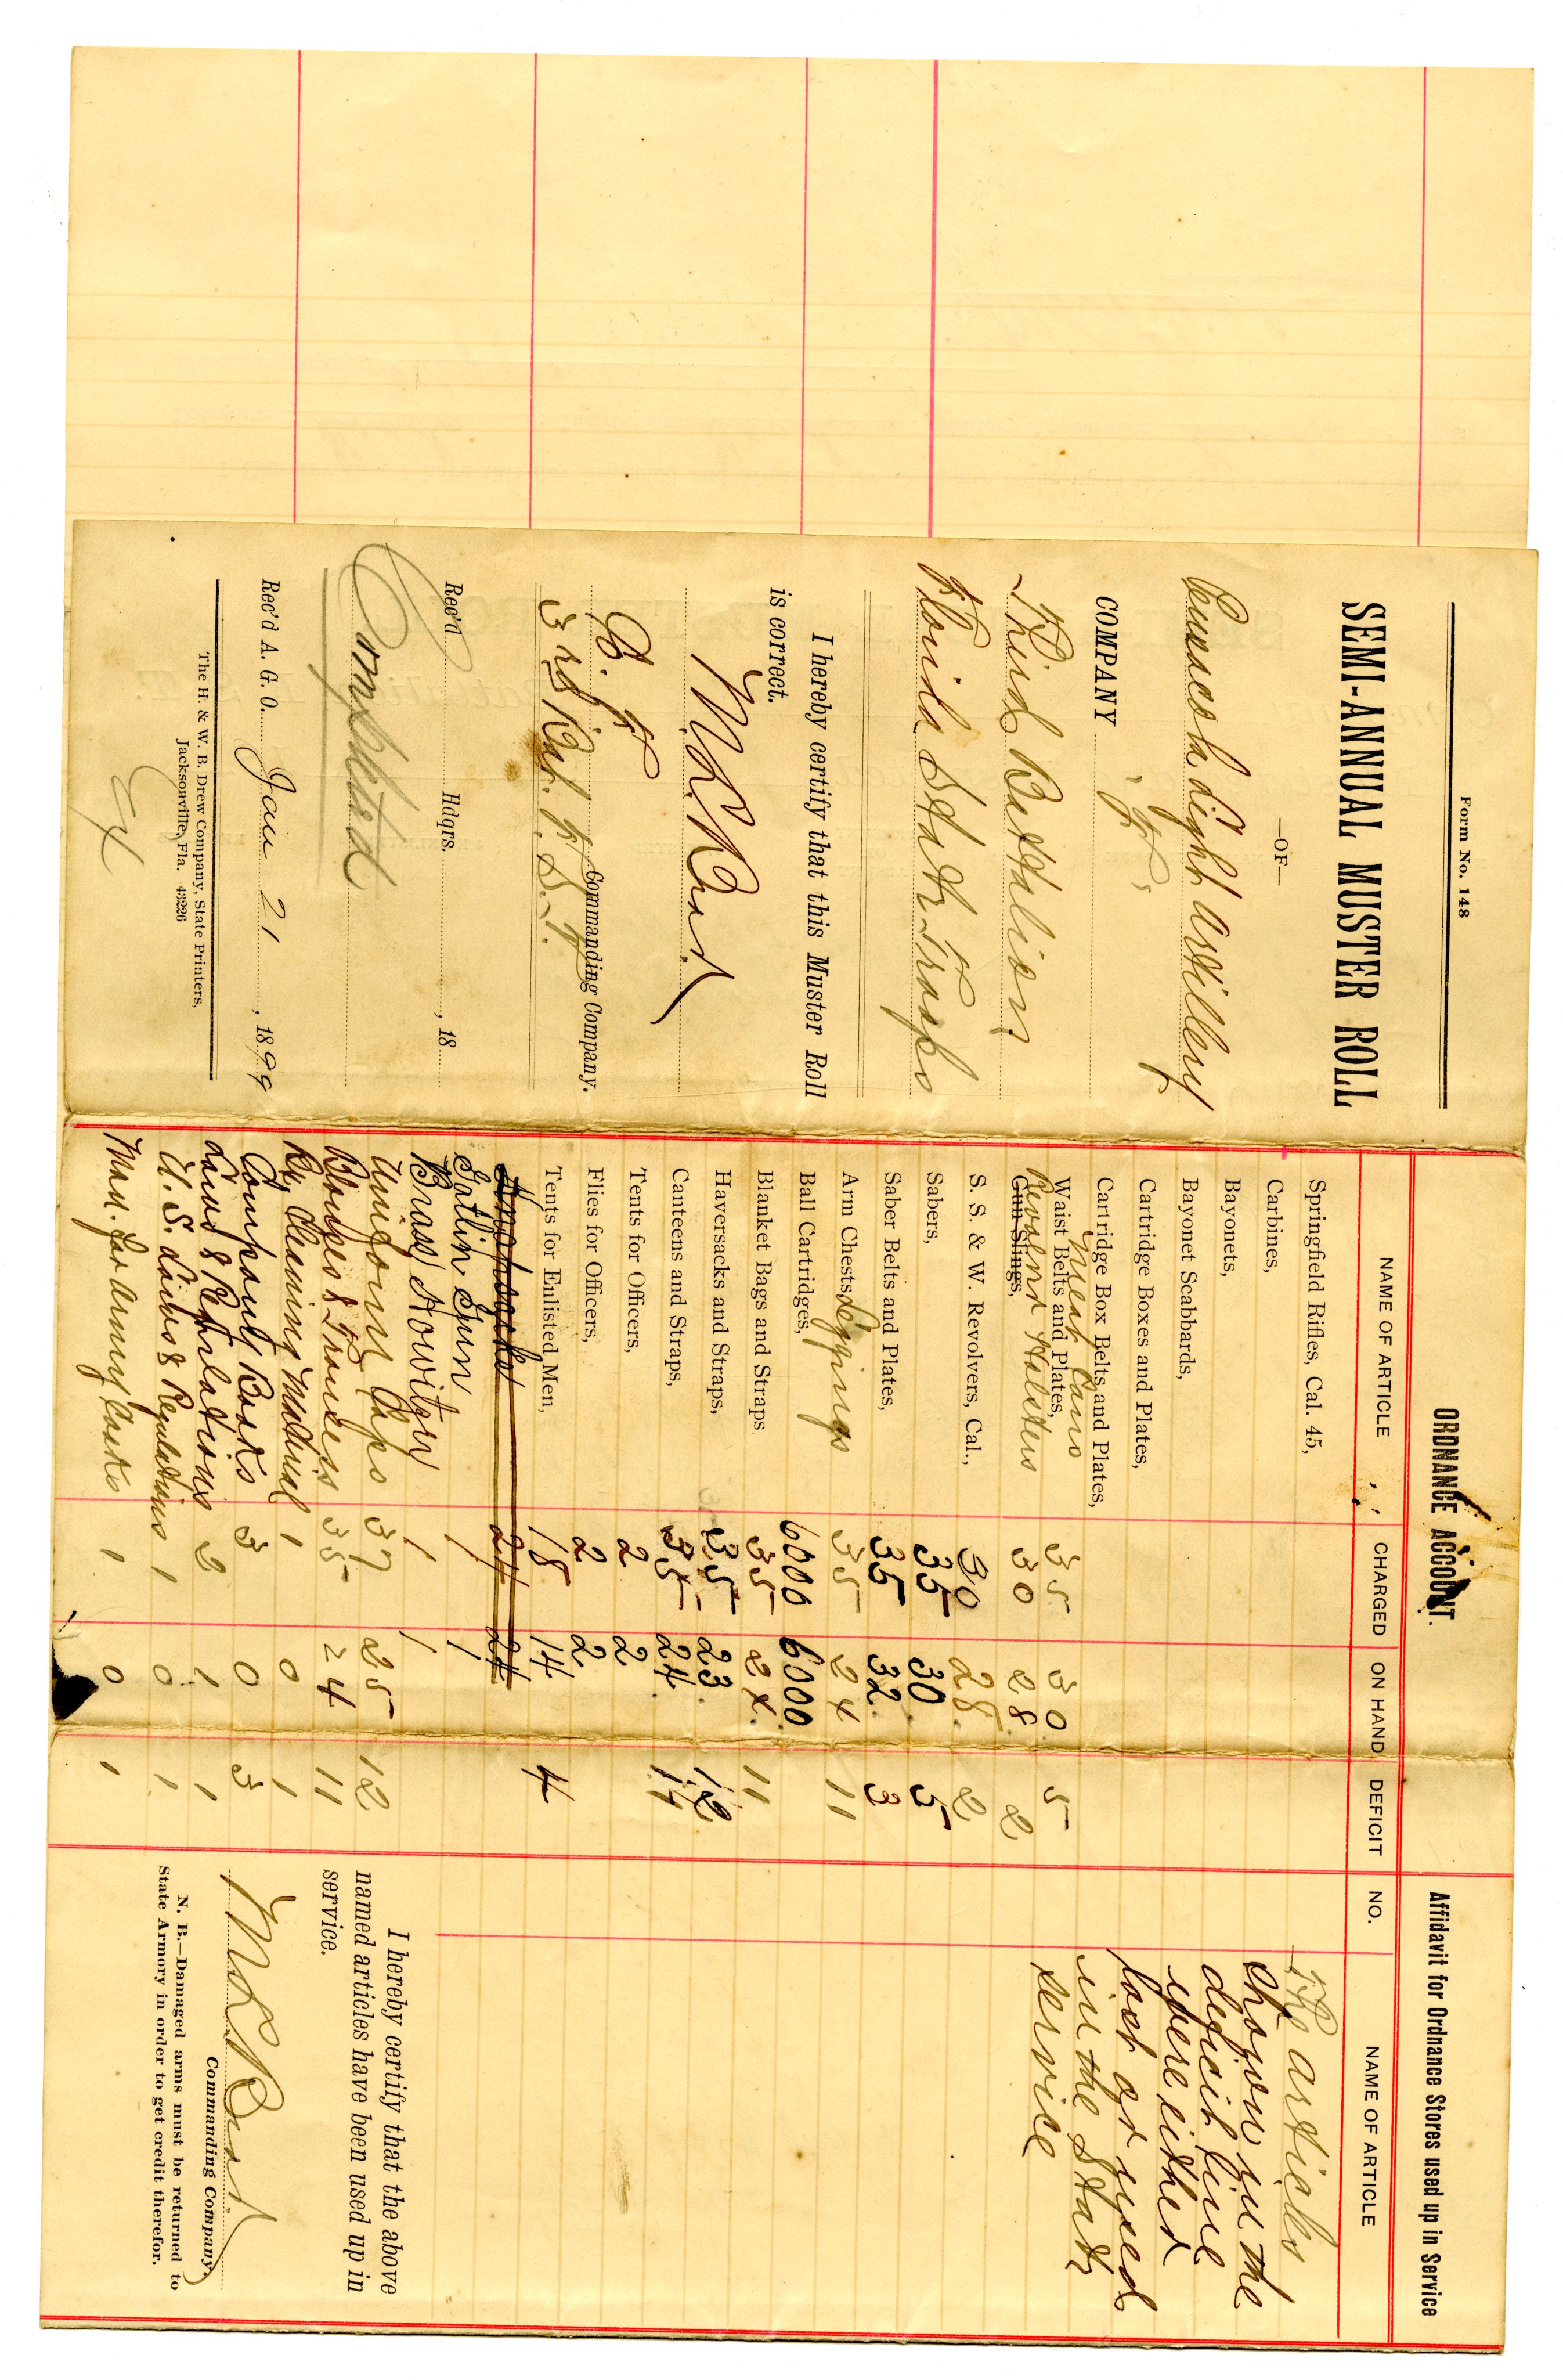 Form No. 148
SEMI-ANNUAL MUSTER ROLL
—OF—
Pensacola Light Artillery
COMPANY "F"
Third Battalion
Florida State Troops
I hereby certify that this Muster Roll
is correct.
Co. F
Commanding Company.
3rd Bat. F. S. T.
Rec'd Hdqrs. , 18
Completed
Rec'd A. G. O. Jan 21 , 1899
The H. & W. B. Drew Company, State Printers,
Jacksonville, Fla. 43226
ORDNANCE ACCOUNT.
NAME OF ARTICLE CHARGED ON HAND DEFICIT
Springfield Rifles, Cal. 45,
Carbines,
Bayonets,
Bayonet Scabbards,
Cartridge Boxes and Plates,
Cartridge Box Belts and Plates,
Meat Cans
Waist Belts and Plates, 35 30 5
Revolver Holsters
Gun Slings, 30 28 2
S. S. & W. Revolvers, Cal., 30 28 2
Sabers, 35 30 5
Saber Belts and Plates, 35 32 3
Arm Chests Leggings 35 24 11
Ball Cartridges, 6000 6000
Blanket Bags and Straps 35 24 11
Haversacks and Straps, 35 23 12
Canteens and Straps, 35 24 14
Tents for Officers, 2 2
Flies for Officers, 2 2
Tents for Enlisted Men, 18 14 4
Knapsacks 24 24
Gatlin Gun 1 1
Brass Howitzer 1 1
Uniform Caps 37 25 12
Blouses & Trousers 35 24 11
Cleaning Manual 1 0 1
Company Books 3 0 3
Laws & Regulations 2 1 1
U. S. Laws & Regulations 1 0 1
Man. for Army Cooks 1 0 1
Affidavit for Ordnance Stores used up in Service
NO. NAME OF ARTICLE
The articles
shown in the
deficit line
were either
lost or used
in the State
service
I hereby certify that the above
named articles have been used up in
service.
Commanding Company.
N. B.—Damaged arms must be returned to
State Armory in order to get credit therefor.